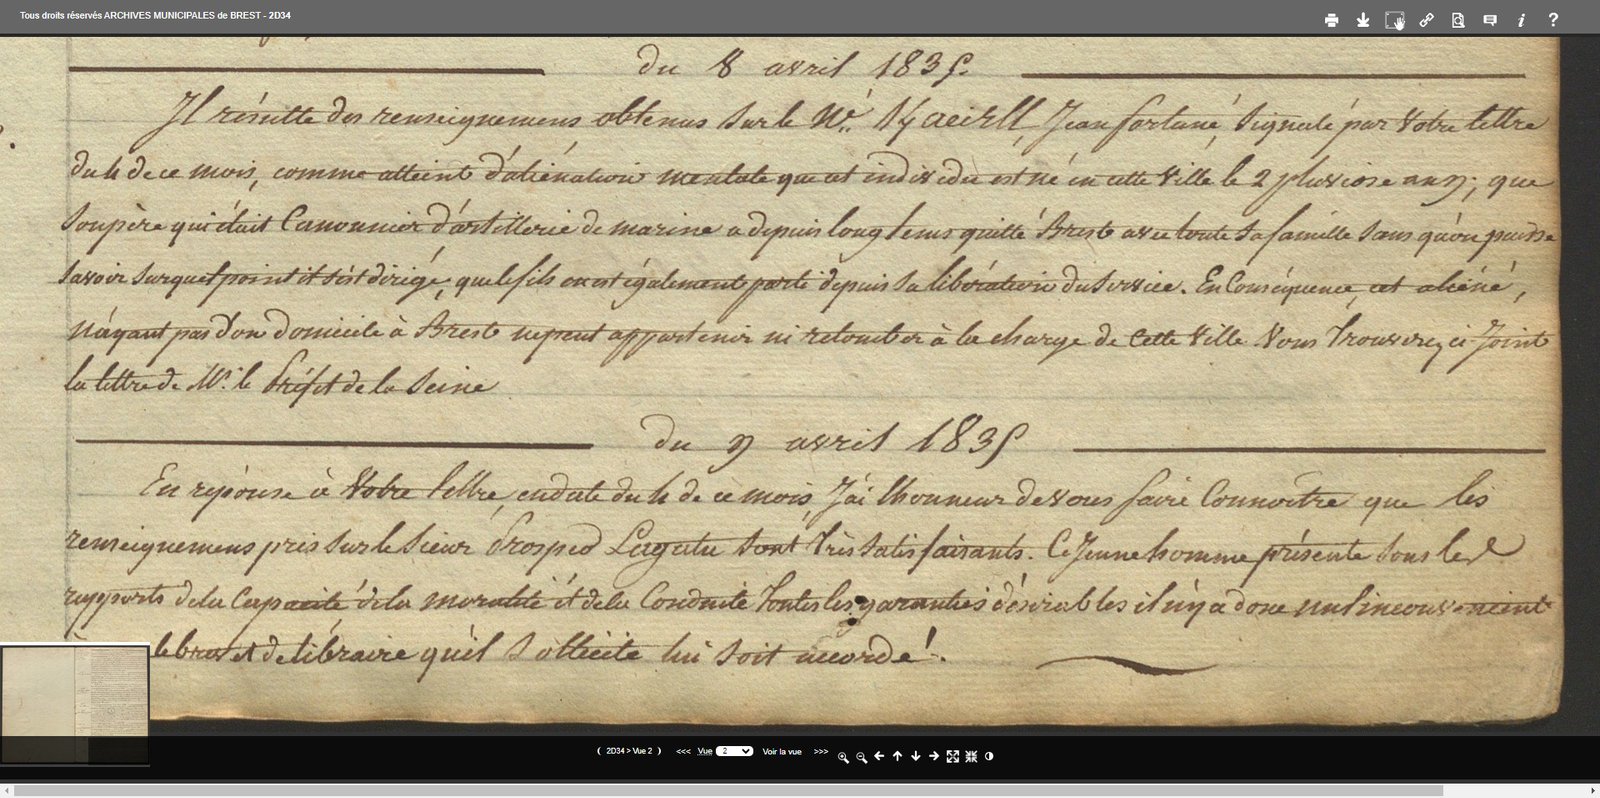 Tous droits réservés ARCHIVES MUNICIPALES de BREST - 2D34
du 8 avril 1835.
Il résulte des renseignemens obtenus sur le Né. Jean fortuné signalé par votre lettre
du 4 de ce mois, comme atteint d'aliénation mentale que cet individu est né en cette ville le 2 pluviose an 9; que
son père qui était Canonnier d'artillerie de marine a depuis longtems quitté Brest avec toute sa famille sans qu'on puisse
savoir sur quel point il s'est dirigé, que le fils en est également parti depuis sa libération du service. En Conséquence, cet aliéné,
n'ayant pas son domicile à Brest ne peut appartenir ni retomber à la charge de cette ville. Vous trouverez ci joint
la lettre de Mr. le Préfet de la Seine
du 9 avril 1835
En réponse à votre lettre, en date du 4 de ce mois, J'ai l'honneur de vous faire Connoitre que les
renseignemens pris sur le sieur Prosper Lagatu sont très satisfaisants. Ce jeune homme présente sous les
rapports de la Capacité de la moralité et de la Conduite toutes les garanties désirables il n'y a donc nul inconvenient
le brevet de libraire qu'il sollicite lui soit accordé.
( 2D34 > Vue 2 ) <<< Vue 2 Voir la vue >>>